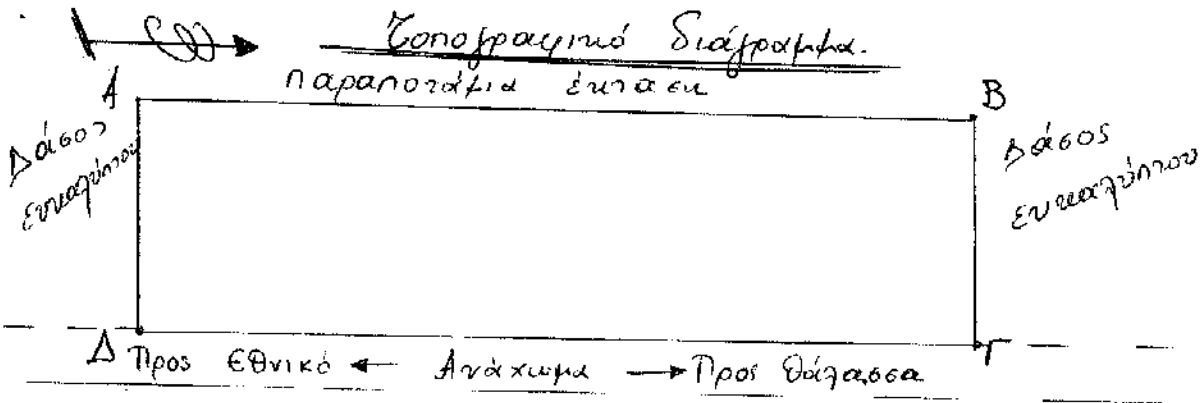 Τοπογραφικό διάγραμμα.
παραποτάμια έκταση
Α
Β
Δάσος
ευκαλύπτου
Δάσος
ευκαλύπτου
Δ
Γ
Προς Εθνικό ← Ανάχωμα → Προς Θάλασσα